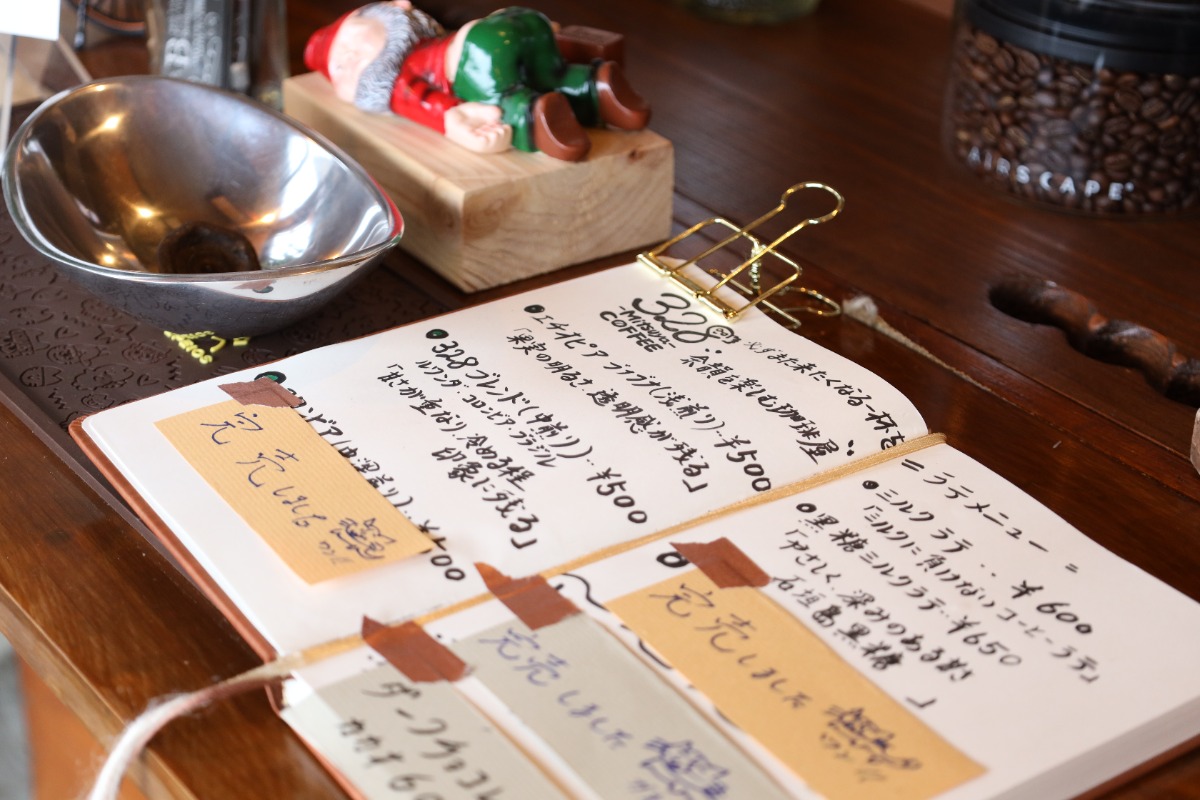 328
-MITSUYA-
COFFEE
また来たくなる一杯を
余韻を楽しむ珈琲屋
エチオピア(浅煎り)‥¥500
「果実の明るさ透明感が残る」
328ブレンド(中煎り)‥¥500
ルワンダ・コロンビア・ブラジル
「甘さが重なり、冷める程
印象に残る」
完売しました
=ラテメニュー=
ミルクラテ‥¥600
「ミルクに負けないコーヒーラテ」
黒糖ミルクラテ‥¥650
「やさしく、深みのある甘さ
石垣島黒糖」
完売しました
ワン
完売しました
ダークチョコレ
カカオ60
AIRSCAPE